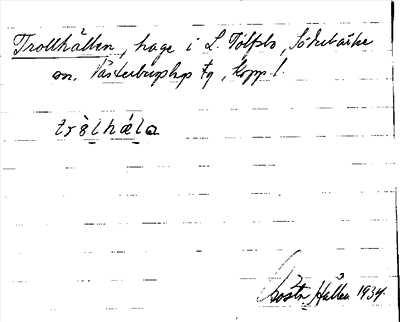 Trollhällen, hage i L. Tolfsbo, Söderbärke
sn. Västerbergslags fg, Kopp. l.
trὸlhæla
Gösta Hallén 1934.